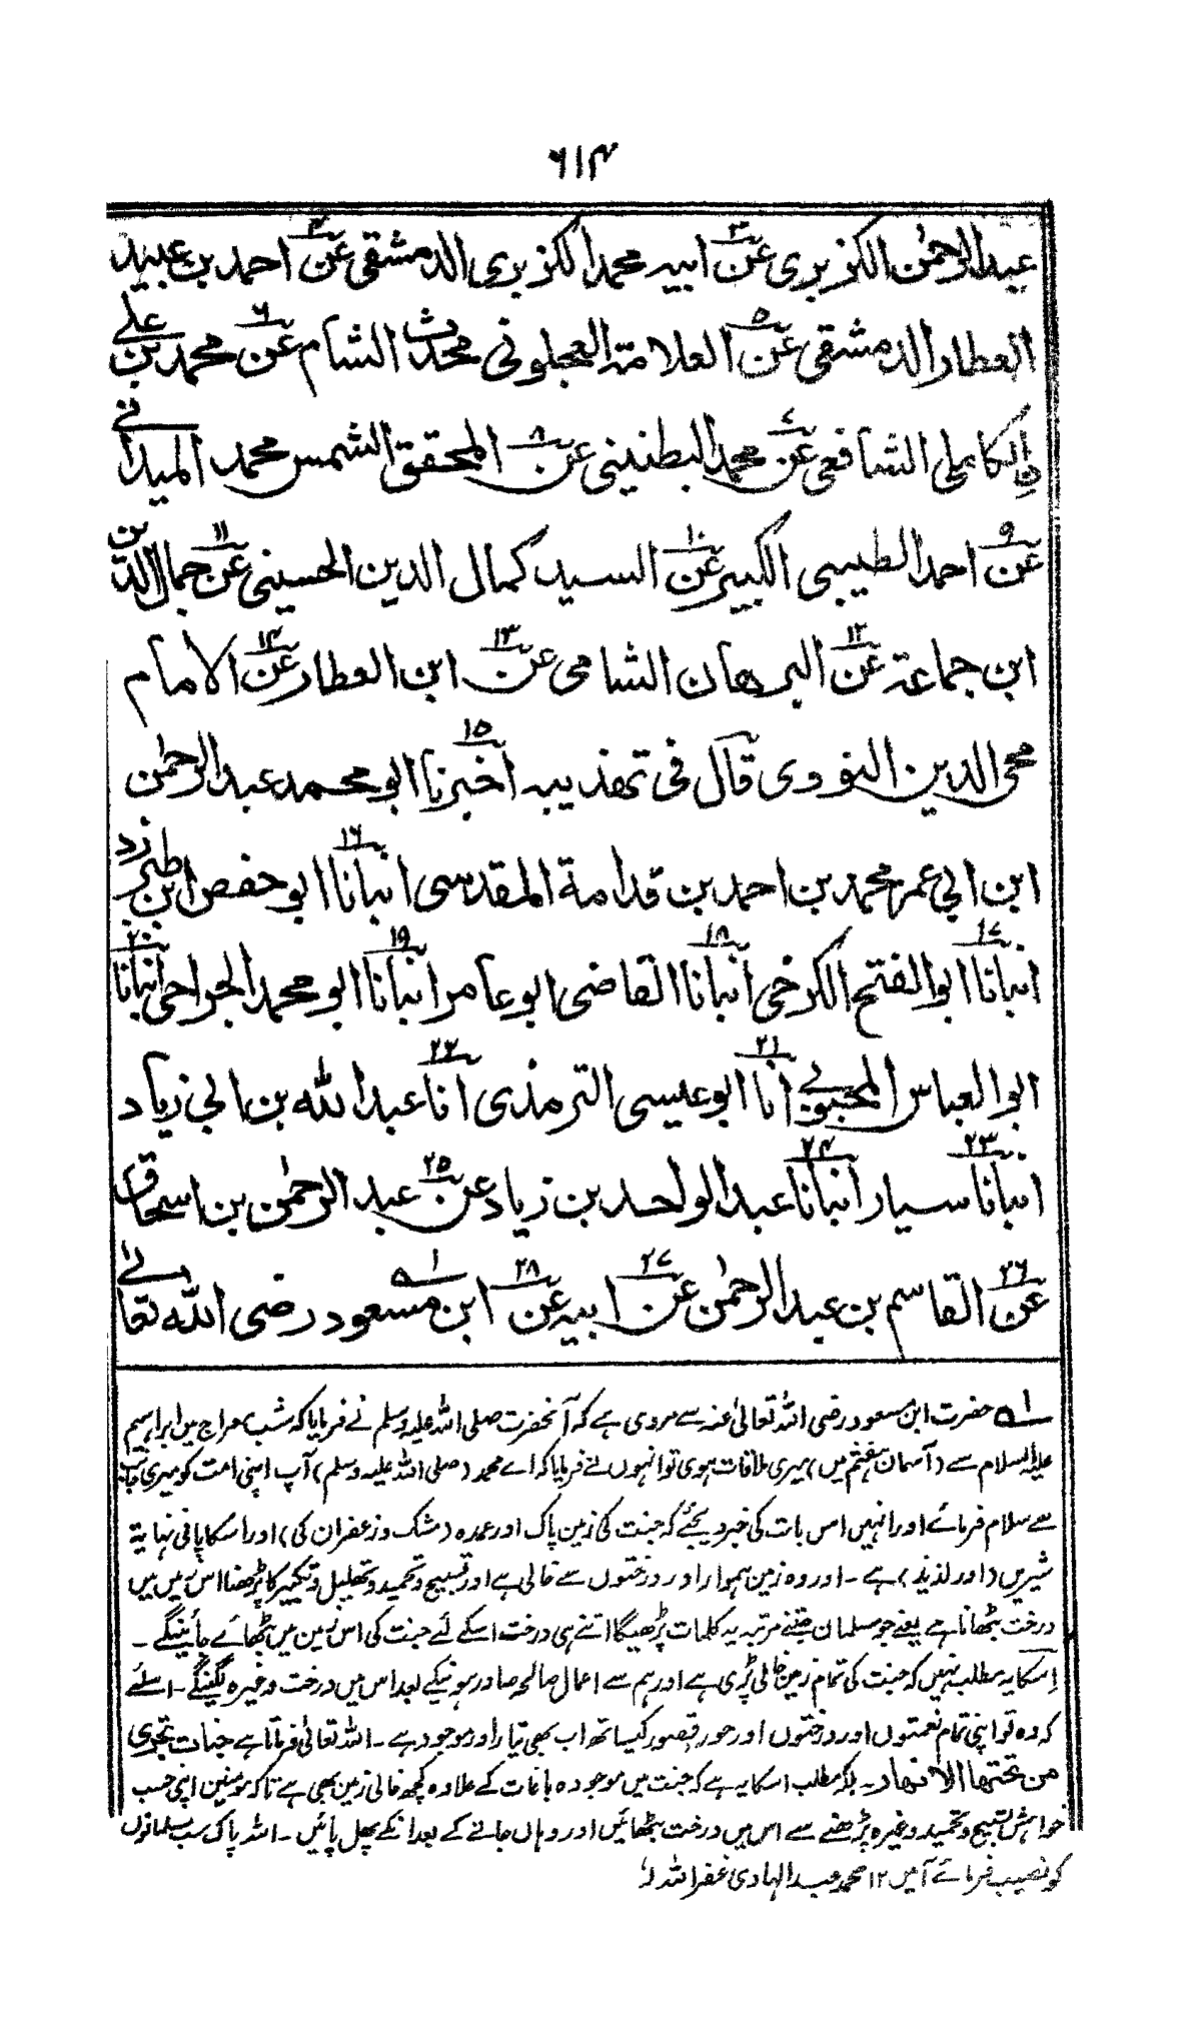 ۶۱۴
عبد الرحمٰن الکزبری عن۳ ابیہ محمد الکزبری الدمشقی عن۴ احمد بن عبید
العطار الدمشقی عن۵ العلامۃ العجلونی محدث الشام عن۶ محمد بن علی
الکاملی الشافعی عن۷ محمد البطنینی عن۸ المحقق الشمس محمد المیدانی
عن۹ احمد الطیبی الکبیر عن۱۰ السید کمال الدین الحسینی عن۱۱ جمال الدین بن
ابن جماعۃ عن۱۲ البرھان الشامی عن۱۳ ابن العطار عن۱۴ الامام
محی الدین النووی قال فی تھذیبہ اخبرنا۱۵ ابو محمد عبد الرحمٰن
ابن ابی عمر محمد بن احمد بن قدامۃ المقدسی انبانا۱۶ ابو حفص ابن طبرزد
انبانا۱۷ ابو الفتح الکرخی انبانا۱۸ القاضی ابو عامر انبانا۱۹ ابو محمد الجراحی انبانا۲۰
ابو العباس المحبوبی انا۲۱ ابو عیسی الترمذی انا۲۲ عبد اللّٰہ بن ابی زیاد
انبانا۲۳ سیار انبانا۲۴ عبد الواحد بن زیاد عن۲۵ عبد الرحمٰن بن اسحاق
عن۲۶ القاسم بن عبد الرحمٰن عن۲۷ ابیہ عن۲۸ ابن مسعود۱ رضی اللّٰہ تعالےٰ
۱ حضرت ابن مسعود رضی اللہ تعالیٰ عنہ سے مروی ہے کہ آنحضرت صلی اللہ علیہ وسلم نے فرمایا کہ شب معراج میں ابراہیم
علیہ السلام سے (آسمان ہفتم میں) میری ملاقات ہوی تو انہوں نے فرمایا کہ اے محمد (صلی اللہ علیہ وسلم) آپ اپنی امت کو میری جانب
سے سلام فرمائے اور انہیں اس بات کی خبر دیجئے کہ جنت کی زمین پاک اور عمدہ (مشک و زعفران کی) اور اسکا پانی نہایۃ
شیریں (اور لذیذ) ہے ۔ اور وہ زمین ہموار اور درختوں سے خالی ہے اور تسبیح و تحمید و تھلیل و تکبیر کا پڑھنا اس زمین میں
درخت بٹھانا ہے یعنے جو مسلمان جتنے مرتبہ یہ کلمات پڑھیگا اتنے ہی درخت اسکے لئے جنت کی اس زمین میں بٹھائے جائینگے ۔
اِسکا یہ مطلب نہیں کہ جنت کی تمام زمین خالی پڑی ہے اور ہم سے اعمال صالحہ صادر ہونیکے بعد اس میں درخت وغیرہ لگینگے ۔ اسلئے
کہ وہ تو اپنی تمام نعمتوں اور درختوں اور حور قصور کیساتھ اب بھی تیار اور موجود ہے ۔ اللہ تعالیٰ فرماتا ہے جنات تجری
من تحتھا الانھار ۔ بلکہ مطلب اسکا یہ ہے کہ جنت میں موجودہ باغات کے علاوہ کچھ خالی زمین بھی ہے تاکہ مومنین اپنی حسب
خواہش تسبیح و تحمید وغیرہ پڑھنے سے اس میں درخت بٹھائیں اور وہاں جانے کے بعد انکے پھل پائیں ۔ اللہ پاک سب مسلمانوں
کو نصیب فرمائے آمین ۱۲ محمد عبد الہادی غفر اللہ لہٗ